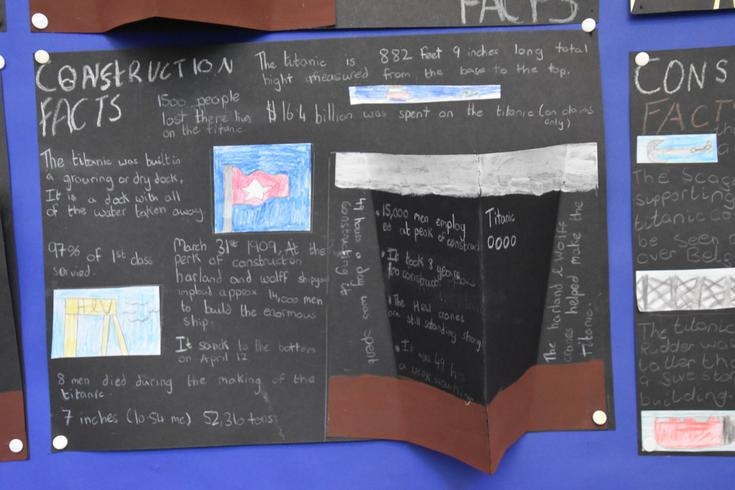 FACTS
CONSTRUCTION
FACTS
The titanic is 882 feet 9 inches long total
hight measured from the base to the top.
1500 people
lost there lives
on the titanic
$16.4 billion was spent on the titanic (on claims
only)
The titanic was built in
a grouring or dry dock,
It is a dock with all
of the water taken away.
97% of 1st class
servied.
March 31st 1909, At the
perk of construction
harland and wolff shipyard
implout approx 14,000 men
to build the enormous
ship.
It sanck to the bottom
on April 12
H&W
8 men died during the making of the
titanic.
7 inches (10.54 me) 52,310 tons
49 hours a day was spent
constructing it
15,000 men employ
ed at perk of construct
It took 3 years
to construct
The H&W crones
are still standing strong
It was 49 hrs
a week working
Titanic
0000
The harland & wolff
cranes helped make the
Titanic.
CONS
FACT
The Scac
supporting
titanic co
be seen
over Bel
The titanic
Rudder was
taller tha
a five stor
building.